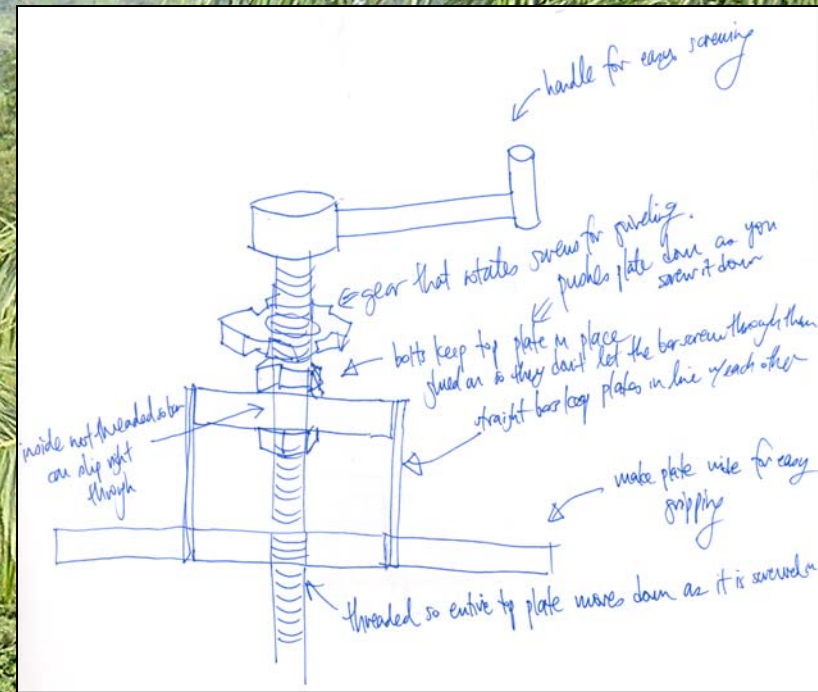 handle for easy screwing
gear that rotates screws for grinding.
pushes plate down as you
screw it down
bolts keep top plate in place
glued on so they don't let the bar screw through them
straight bars keep plates in line w/ each other
inside not threaded so bar
can slip right
through
make plate wide for easy
gripping
threaded so entire top plate moves down as it is screwed in